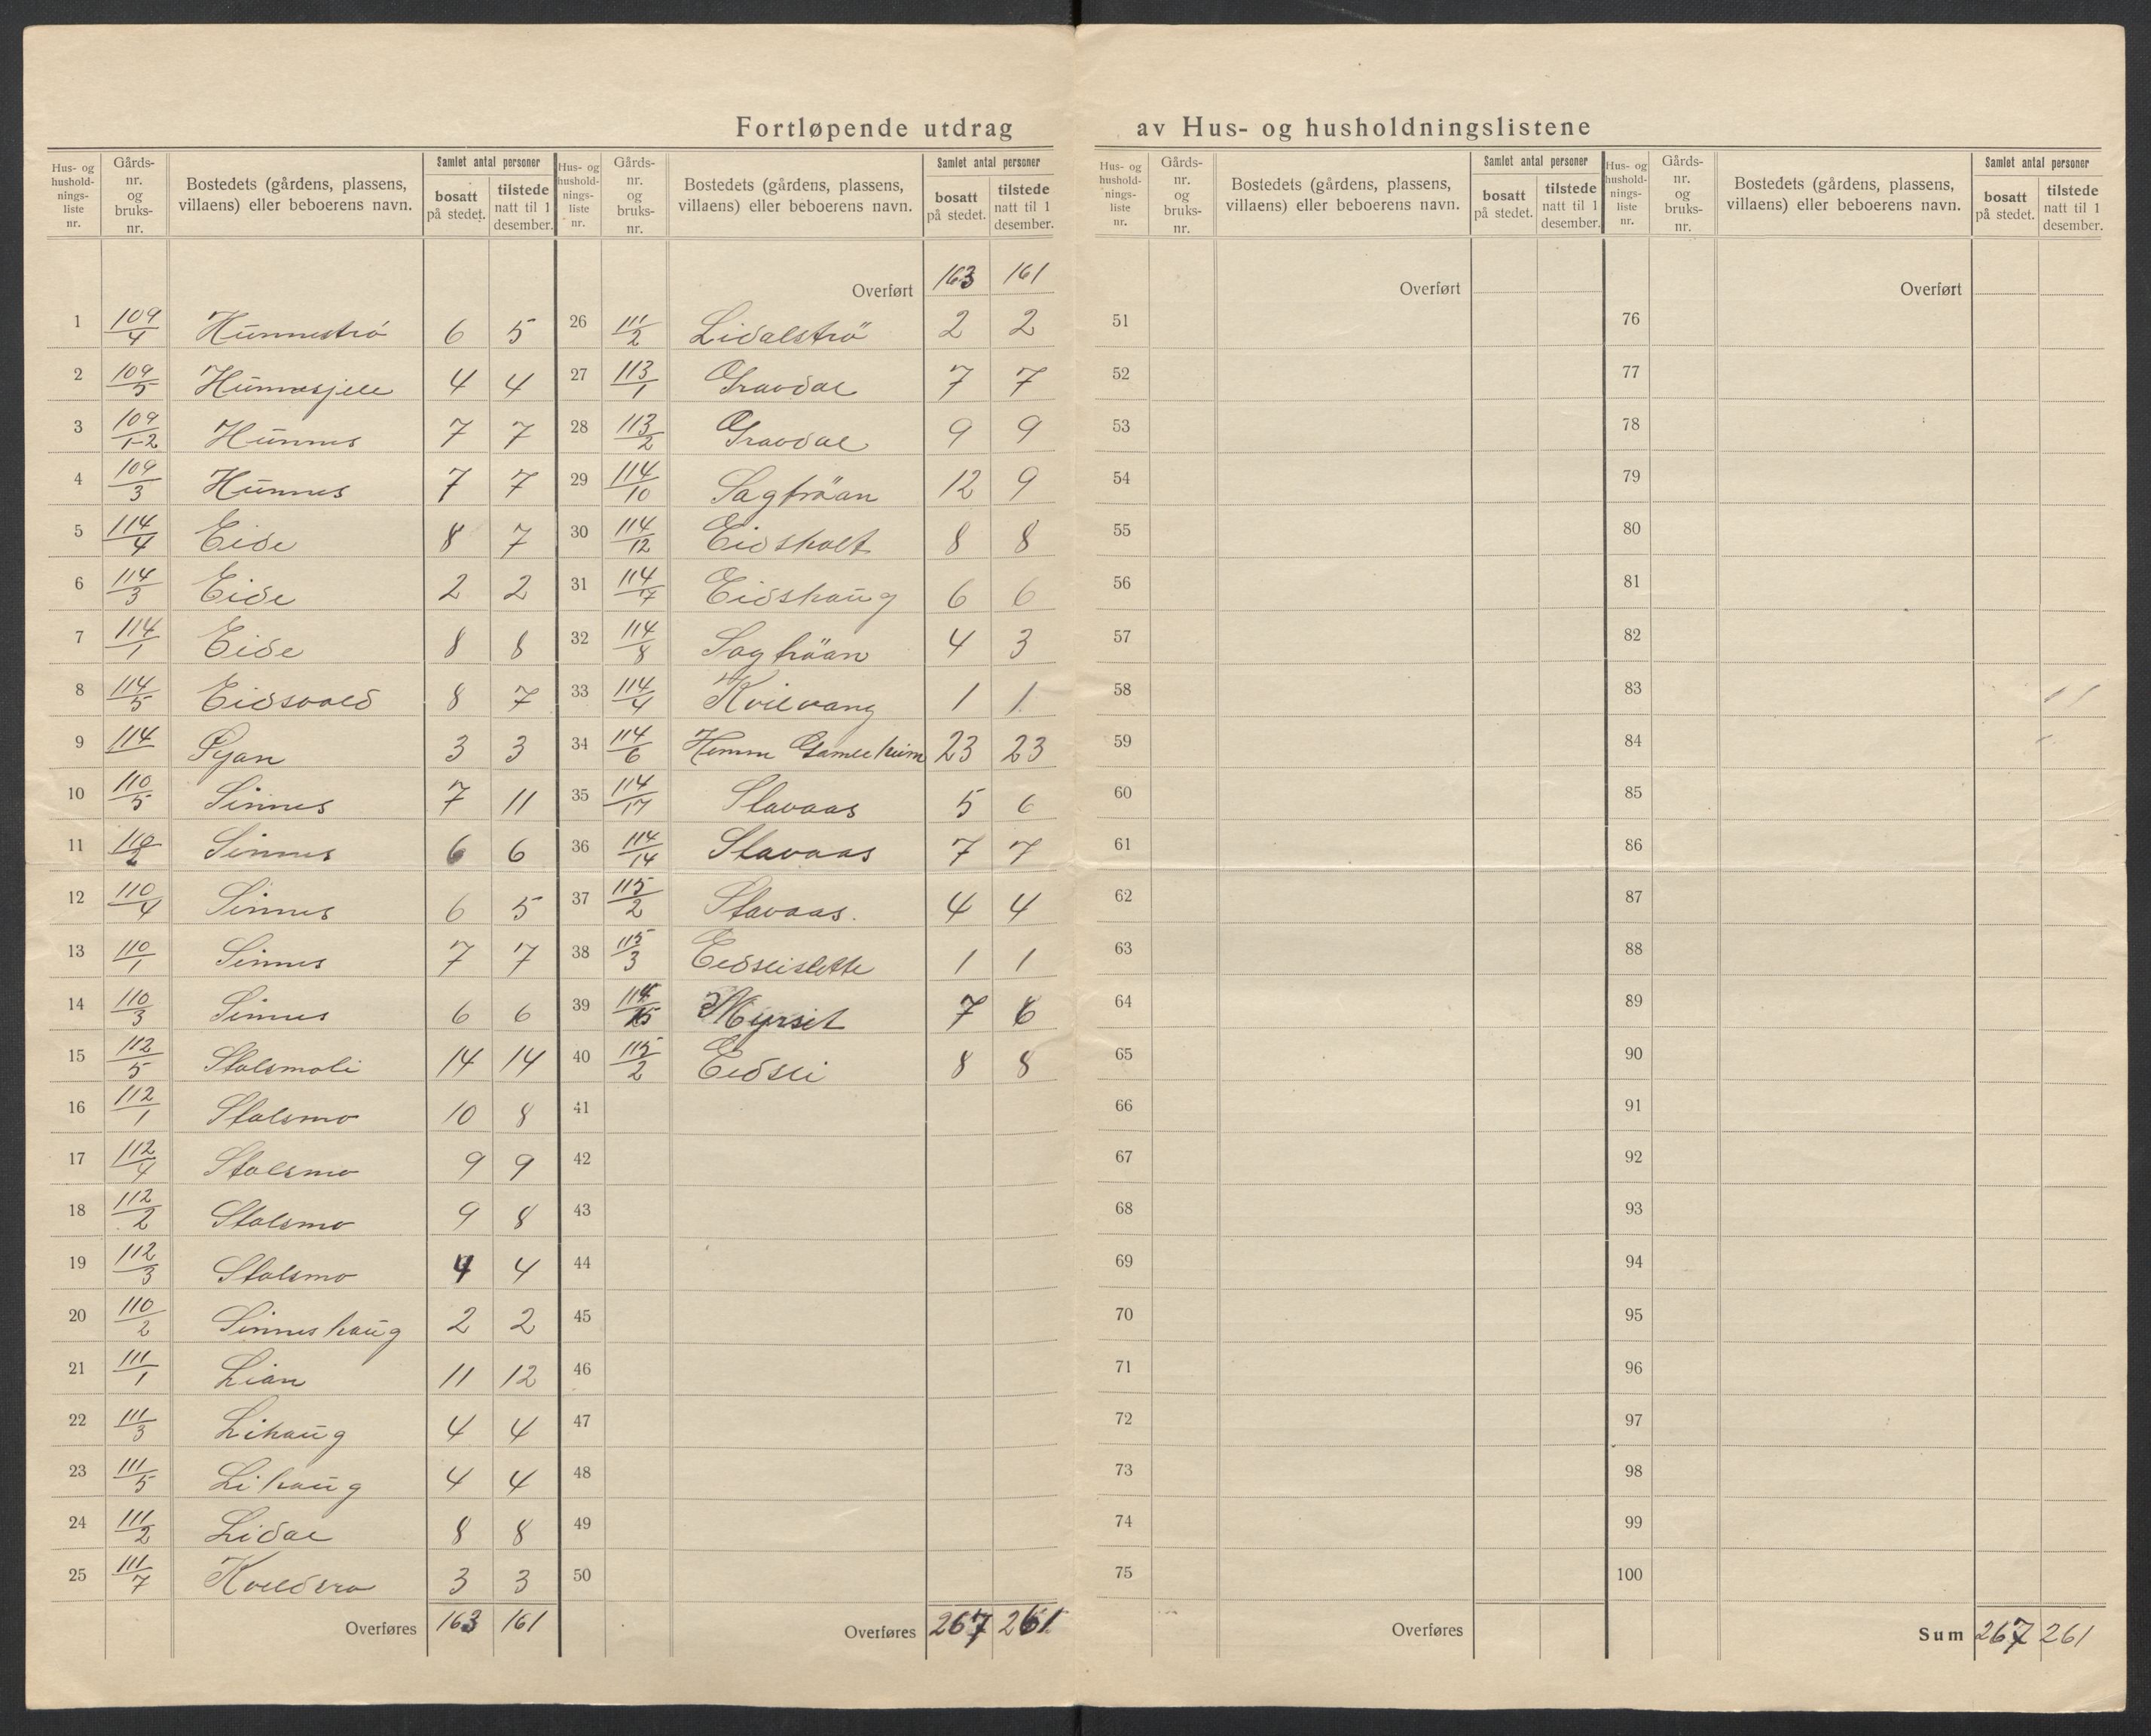 Fortløpende utdrag av Hus- og husholdningslistene
Hus- og husholdnings-liste nr. Gårds-nr. og bruks-nr. Bostedets (gårdens, plassens, villaens) eller beboerens navn. Samlet antal personer bosatt på stedet. tilstede natt til 1 desember.
1 109/4 Hunneströ 6 5
2 109/5 Hunnesjele 4 4
3 109/1-2 Hunnes 7 7
4 109/3 Hunnes 7 7
5 114/4 Eide 8 7
6 114/3 Eide 2 2
7 114/1 Eide 8 8
8 114/5 Eidsvold 8 7
9 114 3 3
10 110/5 Sinnes 7 11
11 Sinnes 6 6
12 110/4 Sinnes 6 5
13 110/1 Sinnes 7 7
14 110/3 Sinnes 6 6
15 112/5 Stolsmoli 14 14
16 112/1 Stolsmo 10 8
17 112/4 Stolsmo 9 9
18 112/2 Stolsmo 9 8
19 112/3 Stolsmo 4 4
20 110/2 Sinneshaug 2 2
21 111/1 Lian 11 12
22 111/3 Lihaug 4 4
23 111/5 Lihaug 4 4
24 111/2 Lidal 8 8
25 111/7 Kveldsro 3 3
Overføres 163 161
Hus- og husholdnings-liste nr. Gårds-nr. og bruks-nr. Bostedets (gårdens, plassens, villaens) eller beboerens navn. Samlet antal personer bosatt på stedet. tilstede natt til 1 desember.
Overført 163 161
26 111/2 Lidalströ 2 2
27 113/1 Gravdal 7 7
28 113/2 Gravdal 9 9
29 114/10 Sagtröan 12 9
30 114/12 Eidsholt 8 8
31 114/7 Eidshaug 6 6
32 114/8 Sagtröan 4 3
33 114/4 Kvilvang 1 1
34 114/6 Hemne Gamleheim 23 23
35 114/17 Stavaas 5 6
36 114/14 Stavaas 7 7
37 115/2 Stavaas. 4 4
38 115/3 Eidslislette 1 1
39 Myrset 7 6
40 115/2 Eidsli 8 8
41
42
43
44
45
46
47
48
49
50
Overføres 267 261
Hus- og husholdnings-liste nr. Gårds-nr. og bruks-nr. Bostedets (gårdens, plassens, villaens) eller beboerens navn. Samlet antal personer bosatt på stedet. tilstede natt til 1 desember.
Overført
51
52
53
54
55
56
57
58
59
60
61
62
63
64
65
66
67
68
69
70
71
72
73
74
75
Overføres
Hus- og husholdnings-liste nr. Gårds-nr. og bruks-nr. Bostedets (gårdens, plassens, villaens) eller beboerens navn. Samlet antal personer bosatt på stedet. tilstede natt til 1 desember.
Overført
76
77
78
79
80
81
82
83
84
85
86
87
88
89
90
91
92
93
94
95
96
97
98
99
100
Sum 267 261